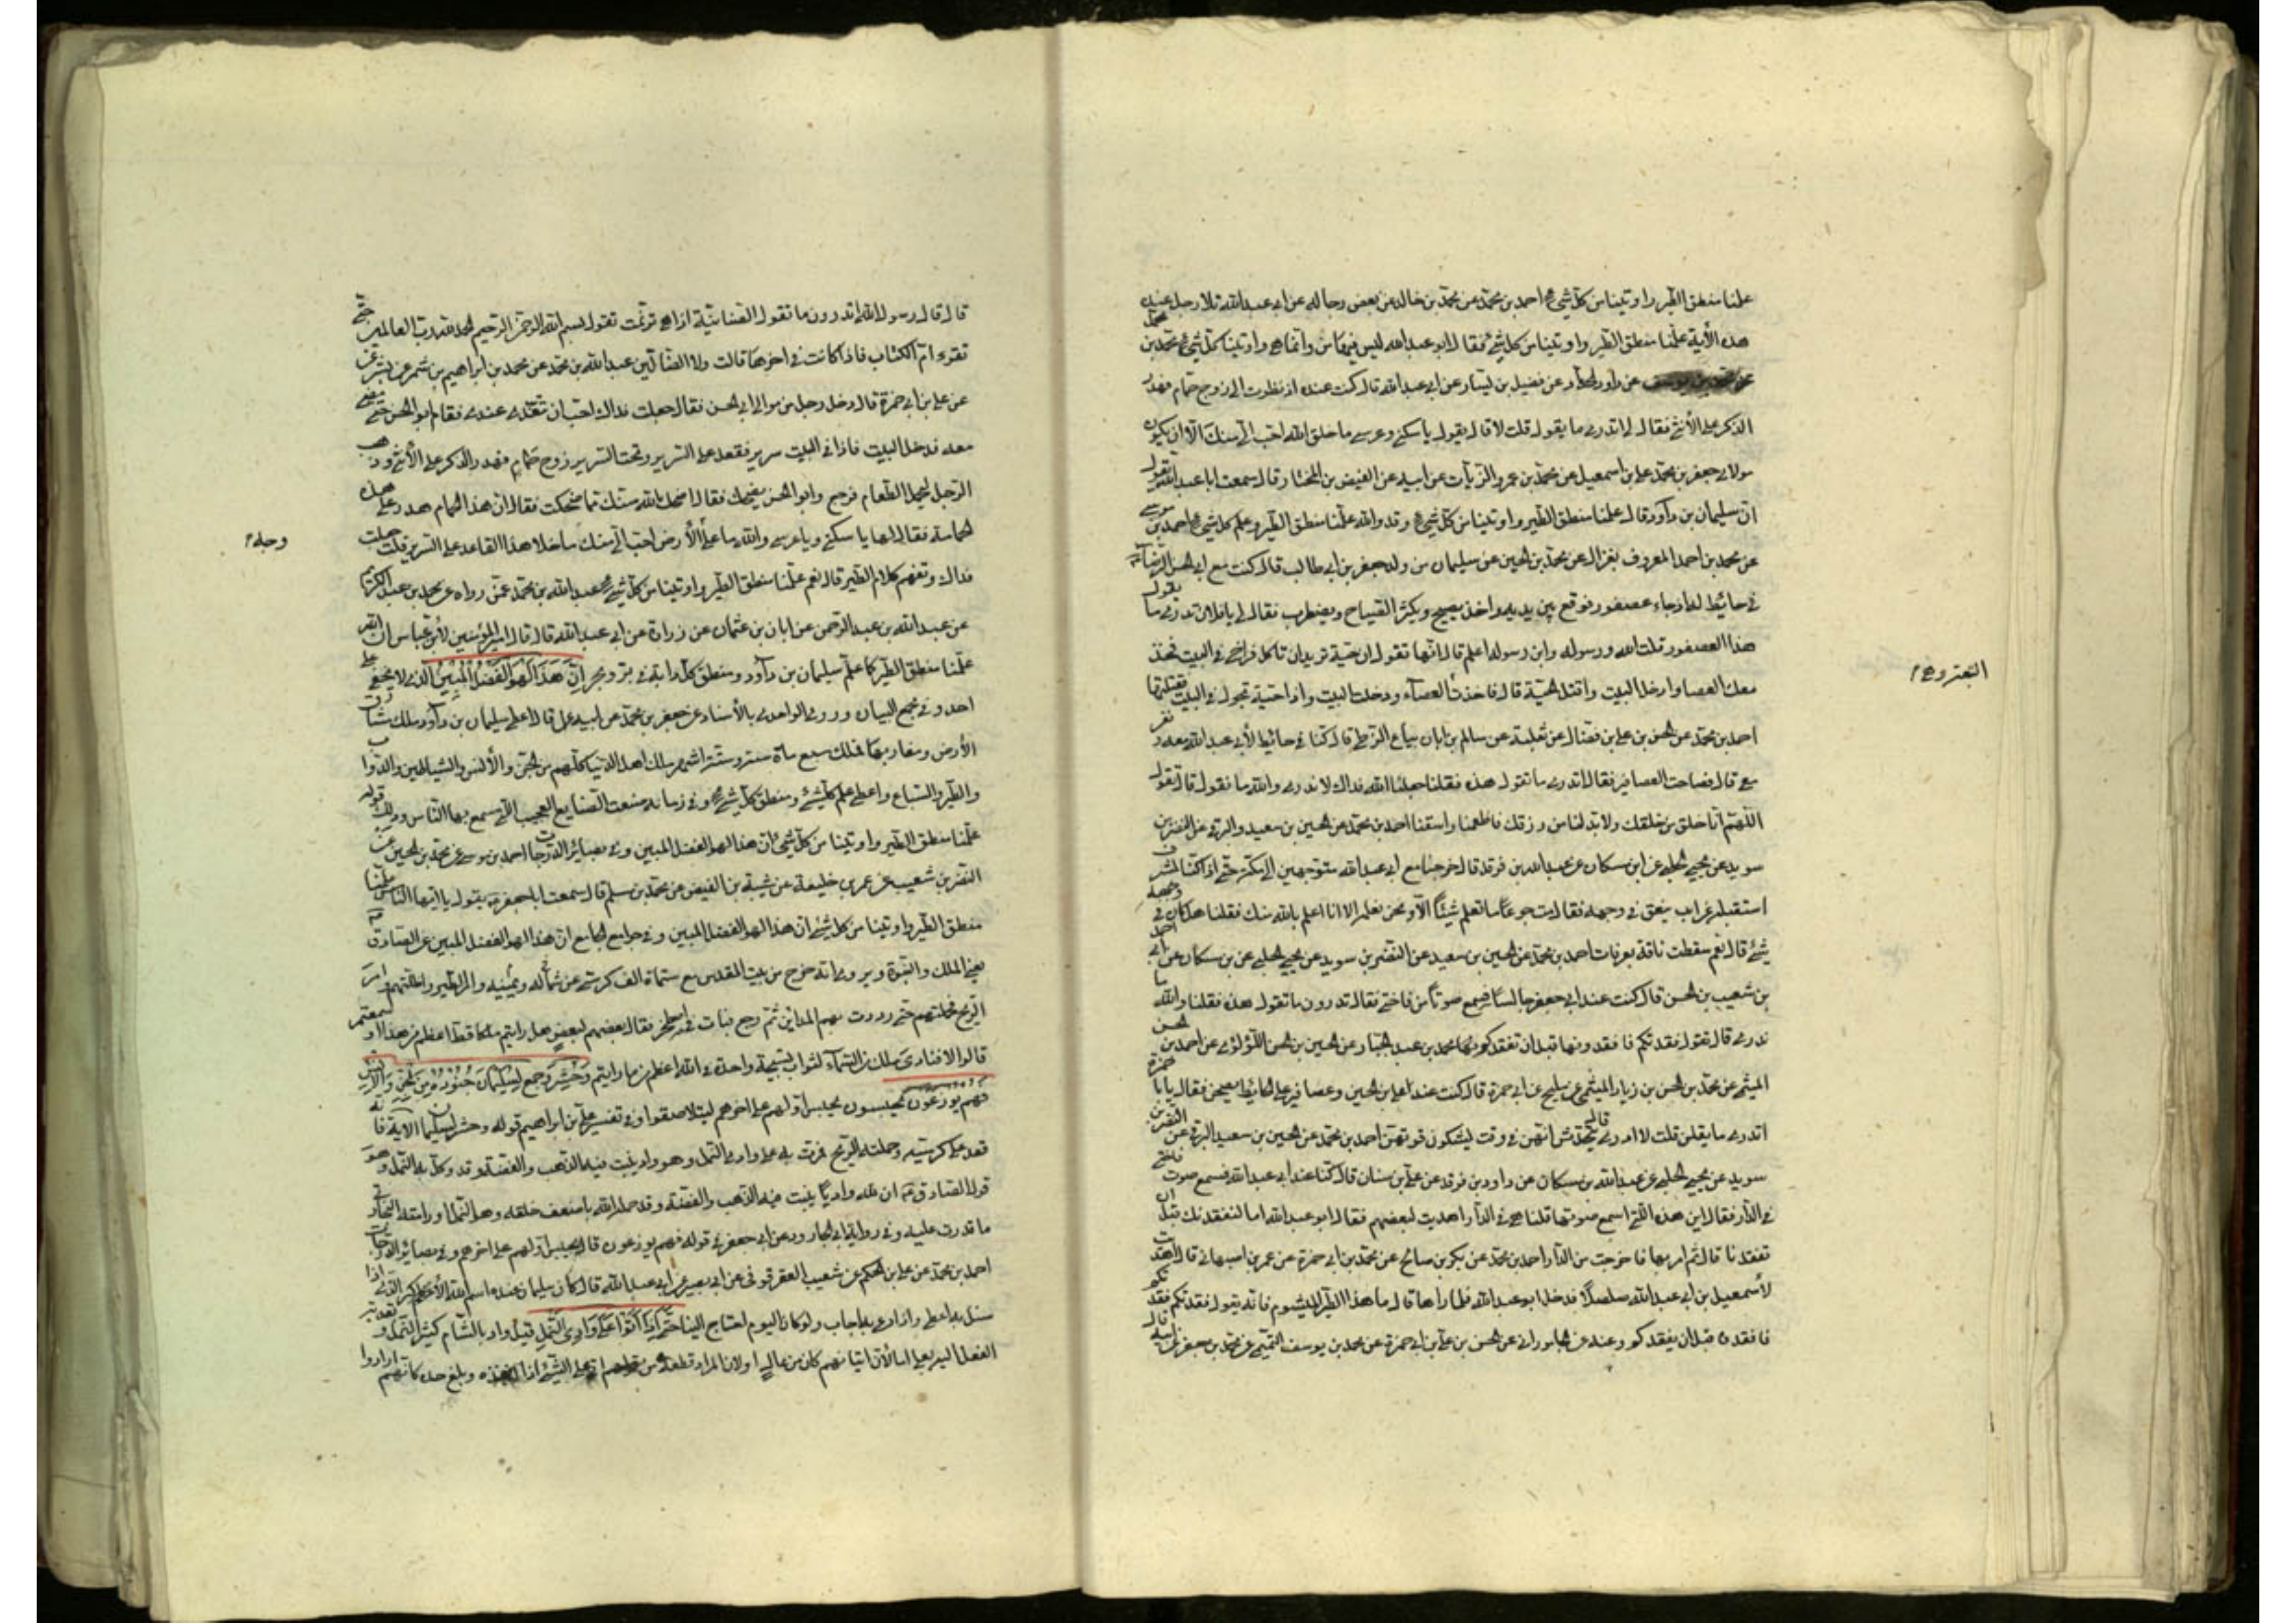 علمنا منطق الطير واوتينا من كل شيء احمد بن محمد عن محمد بن خالد عن بعض رجاله عن ابي عبد الله تلا رجل عنده
هذه الأية علمنا منطق الطير واوتينا من كل شيء فقال ابو عبد الله ليس فيها من وانما هي واوتينا كل شيء محمد بن
عن داود الحداد عن فضيل بن يسار عن ابي عبد الله قال كنت عنده اذ نظرت الى زوج حمام فهدر
الذكر على الأنثى فقال لي اتدري ما يقول قلت لا قال يقول يا سكني وعرسي ما خلق الله احب الي منك الا ان يكون
مولاي جعفر بن محمد علي بن اسمعيل عن محمد بن عمرو الزيات عن ابيه عن الفيض بن المختار قال سمعت ابا عبد الله يقول
ان سليمان بن داود قال علمنا منطق الطير واوتينا من كل شيء وقد والله علمنا منطق الطير وعلم كل شيء احمد بن موسى
عن محمد بن احمد المعروف بغزال عن محمد بن الحسين عن سليمان من ولد جعفر بن ابي طالب قال كنت مع ابي الحسن الرضا
في حائط له اذ جاء عصفور فوقع بين يديه واخذ يصيح ويكثر الصياح ويضطرب فقال لي يا فلان تدري ما يقول
هذا العصفور قلت الله ورسوله وابن رسوله اعلم قال انها تقول ان حية تريد ان تاكل فراخي في البيت فخذ
معك العصا وادخل البيت واقتل الحية قال فاخذت العصاء ودخلت البيت واذا حية تجول في البيت فقتلتها
احمد بن محمد عن الحسن بن علي بن فضال عن ثعلبة عن سالم بن ابان بياع الزطي قال كنا في حائط لأبي عبد الله معه ونفر
معي قال فصاحت العصافير فقال اتدري ما تقول هذه فقلنا جعلنا الله فداك لا ندري والله ما تقول قال تقول
اللهم انا خلق من خلقك ولا بد لنا من رزقك فاطعمنا واسقنا احمد بن محمد عن الحسين بن سعيد والبرقي عن النضر بن
سويد عن يحيى الحلبي عن ابن مسكان عن عبد الله بن فرقد قال خرجنا مع ابي عبد الله متوجهين الى مكة حتى اذا كنا بسرف
استقبله غراب ينعق في وجهه فقال مت جوعا ما تعلم شيئا الا ونحن نعلمه الا انا اعلم بالله منك فقلنا هل كان في وجهه
شيء قال نعم سقطت ناقة بعرفات احمد بن محمد عن الحسين بن سعيد عن النضر بن سويد عن يحيى الحلبي عن بن مسكان عن ابي احمد
بن شعيب بن الحسن قال كنت عند ابي جعفر جالسا فسمع صوتا من فاختة فقال تدرون ما تقول هذه فقلنا والله ما
ندري قال تقول فقدتكم فافقدوها قبل ان تفقدكم محمد بن عبد الجبار عن الحسين بن الحسن اللؤلؤي عن احمد بن الحسن
الميثمي عن محمد بن الحسن بن زياد الميثمي عن مليح عن ابي حمزة قال كنت عند علي بن الحسين وعصافير على الحائط يصيحن فقال يا ابا حمزة
اتدري ما يقلن قلت لا ادري قال يتحدثن انهن في وقت يشكون قوتهن احمد بن محمد عن الحسين بن سعيد البرقي عن النضر بن
سويد عن يحيى الحلبي عن عبد الله بن مسكان عن داود بن فرقد عن علي بن سنان قال كنا عند ابي عبد الله فسمع صوت فاختة
في الدار فقال اين هذه التي اسمع صوتها قلنا هي في الدار اهديت لبعضهم فقال ابو عبد الله اما لنفقدنك قبل ان
تفقدنا قال ثم امر بها فاخرجت من الدار احمد بن محمد عن بكر بن صالح عن محمد بن ابي حمزة عن عمر بن اصبهاني قال اهديت
لأسمعيل بن ابي عبد الله صلصلا فدخل ابو عبد الله فلما راها قال ما هذا الطير المشوم فانه يقول فقدتكم فقدتكم
فافقدوه قبل ان يفقدكم وعنه عن الجاموراني عن الحسن بن علي بن ابي حمزة عن محمد بن يوسف التميمي عن محمد بن جعفر عن ابيه قال
قال قال رسول الله اتدرون ما تقول الصنانية اذا هي ترنمت تقول بسم الله الرحمن الرحيم الحمد لله رب العالمين حتى
تقرء ام الكتاب فاذا كانت في اخرها قالت ولا الضالين عبد الله بن محمد عن محمد بن ابراهيم بن شمر عن بشر عن
عن علي بن ابي حمزة قال دخل رجل من موالي ابي الحسن فقال جعلت فداك احب ان تتغدى عندي فقام ابو الحسن حتى مضى
معه فدخل البيت فاذا في البيت سرير فقعد على السرير وتحت السرير زوج حمام فهدر الذكر على الأنثى وذهب
الرجل ليحمل الطعام فرجع وابو الحسن يضحك فقال اضحك الله سنك مما ضحكت فقال ان هذا الحمام هدر على هذه
الحمامة فقال لها يا سكني ويا عرسي والله ما على الأرض احب الي منك ما خلا هذا القاعد على السرير قلت جعلت
فداك وتفهم كلام الطير قال نعم علمنا منطق الطير واوتينا من كل شيء عبد الله بن محمد عمن رواه عن محمد بن عبد الكريم
عن عبد الله بن عبد الرحمن عن ابان بن عثمان عن زرارة عن ابي عبد الله قال قال امير المؤمنين لأبن عباس ان الله
علمنا منطق الطير كما علم سليمان بن داود ومنطق كل دابة في بر وبحر إن هذا لهو الفضل المبين الذي لا يخفى على
احد وفي مجمع البيان وروى الواحدي بالأسناد عن جعفر بن محمد عن ابيه قال اعطي سليمان بن داود ملك مشارق
الأرض ومغاربها فملك سبع مأة سنة وستة اشهر ملك اهل الدنيا كلهم من الجن والأنس والشياطين والدواب
والطير والسباع واعطي علم كل شيء ومنطق كل شيء وفي زمانه صنعت الصنايع العجيبة التي سمع بها الناس وذلك قوله
علمنا منطق الطير واوتينا من كل شيء ان هذا لهو الفضل المبين وفي بصائر الدرجات احمد بن موسى عن محمد بن الحسين عن
النضر بن شعيب عن عمر بن خليفة عن شيبة بن الفيض عن محمد بن مسلم قال سمعت ابا جعفر يقول يا ايها الناس علمنا
منطق الطير واوتينا من كل شيء ان هذا لهو الفضل المبين وفي جوامع الجامع ان هذا لهو الفضل المبين عن الصادق
يعني الملك والنبوة ويروى انه خرج من بيت المقدس مع ستمأة الف كرسي عن شماله ويمينه وامر الطير فاظلتهم وامر
الريح فحملتهم حتى وردت بهم المداين ثم رجع فبات في اصطخر فقال بعضهم لبعض هل رايتم ملكا قط اعظم من هذا او سمعتم
قالوا لا فنادى ملك من السماء لثواب تسبيحة واحدة في الله اعظم مما رايتم وحشر وجمع لسليمان جنوده من الجن والأنس
فهم يوزعون يحبسون يحبس اولهم على اخرهم ليتلاصقوا وفي تفسير علي بن ابراهيم قوله وحشر لسليمان الأية فانه
قعد على كرسيه وحملته الريح فمرت به على وادي النمل وهو واد ينبت فيه الذهب والفضة وقد وكل به النمل وهو
قول الصادق ان لله واديا ينبت فيه الذهب والفضة وقد حماه الله باضعف خلقه وهو النمل لو رامته البخاتي
ما قدرت عليه وفي رواية ابي الجارود عن ابي جعفر في قوله فهم يوزعون قال يحبس اولهم على اخرهم وفي بصائر الدرجات
احمد بن محمد عن علي بن الحكم عن شعيب العقرقوفي عن ابي بصير عن ابي عبد الله قال كان سليمان عنده اسم الله الأكبر الذي اذا
سئل به اعطى واذا دعي به اجاب ولو كان اليوم لاحتاج الينا حتى إذا أتوا على وادي النمل قيل واد بالشام كثير النمل وتعدية
الفعل اليه بعلى اما لأن اتيانهم كان من عال او لان المراد قطعه من اتى على الشيء اذا انفذه وبلغ حده كانهم ارادوا